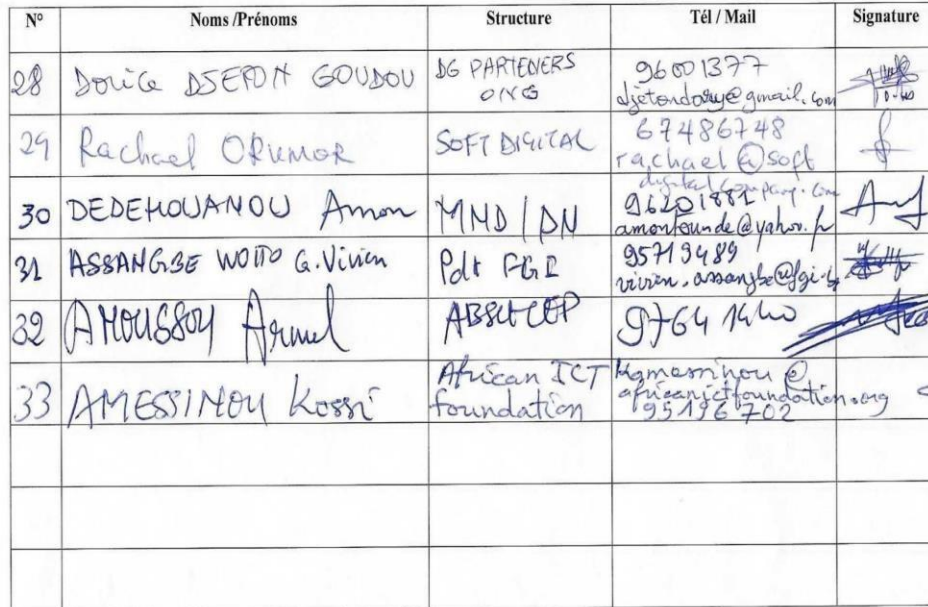 N° Noms /Prénoms Structure Tél / Mail Signature
28 Dorice DJETON GOUDOU DG PARTENERS ONG 96001377
djetondorye@gmail.com
29 Rachael ORUMOR SOFT DIGITAL 67486748
rachael@soft
digital company.com
30 DEDEHOUANOU Amon MND/DN 96201881
amontounde@yahoo.fr
31 ASSANGBE WOTTO G.Vivien Pdt FGI 95719489
vivien.assangbe@fgi-bj
32 AMOUSSOU Armel 9764 1440
33 AMESSINOU Kossi African ICT foundation kamessinou@
africanictfoundation.org
95196702